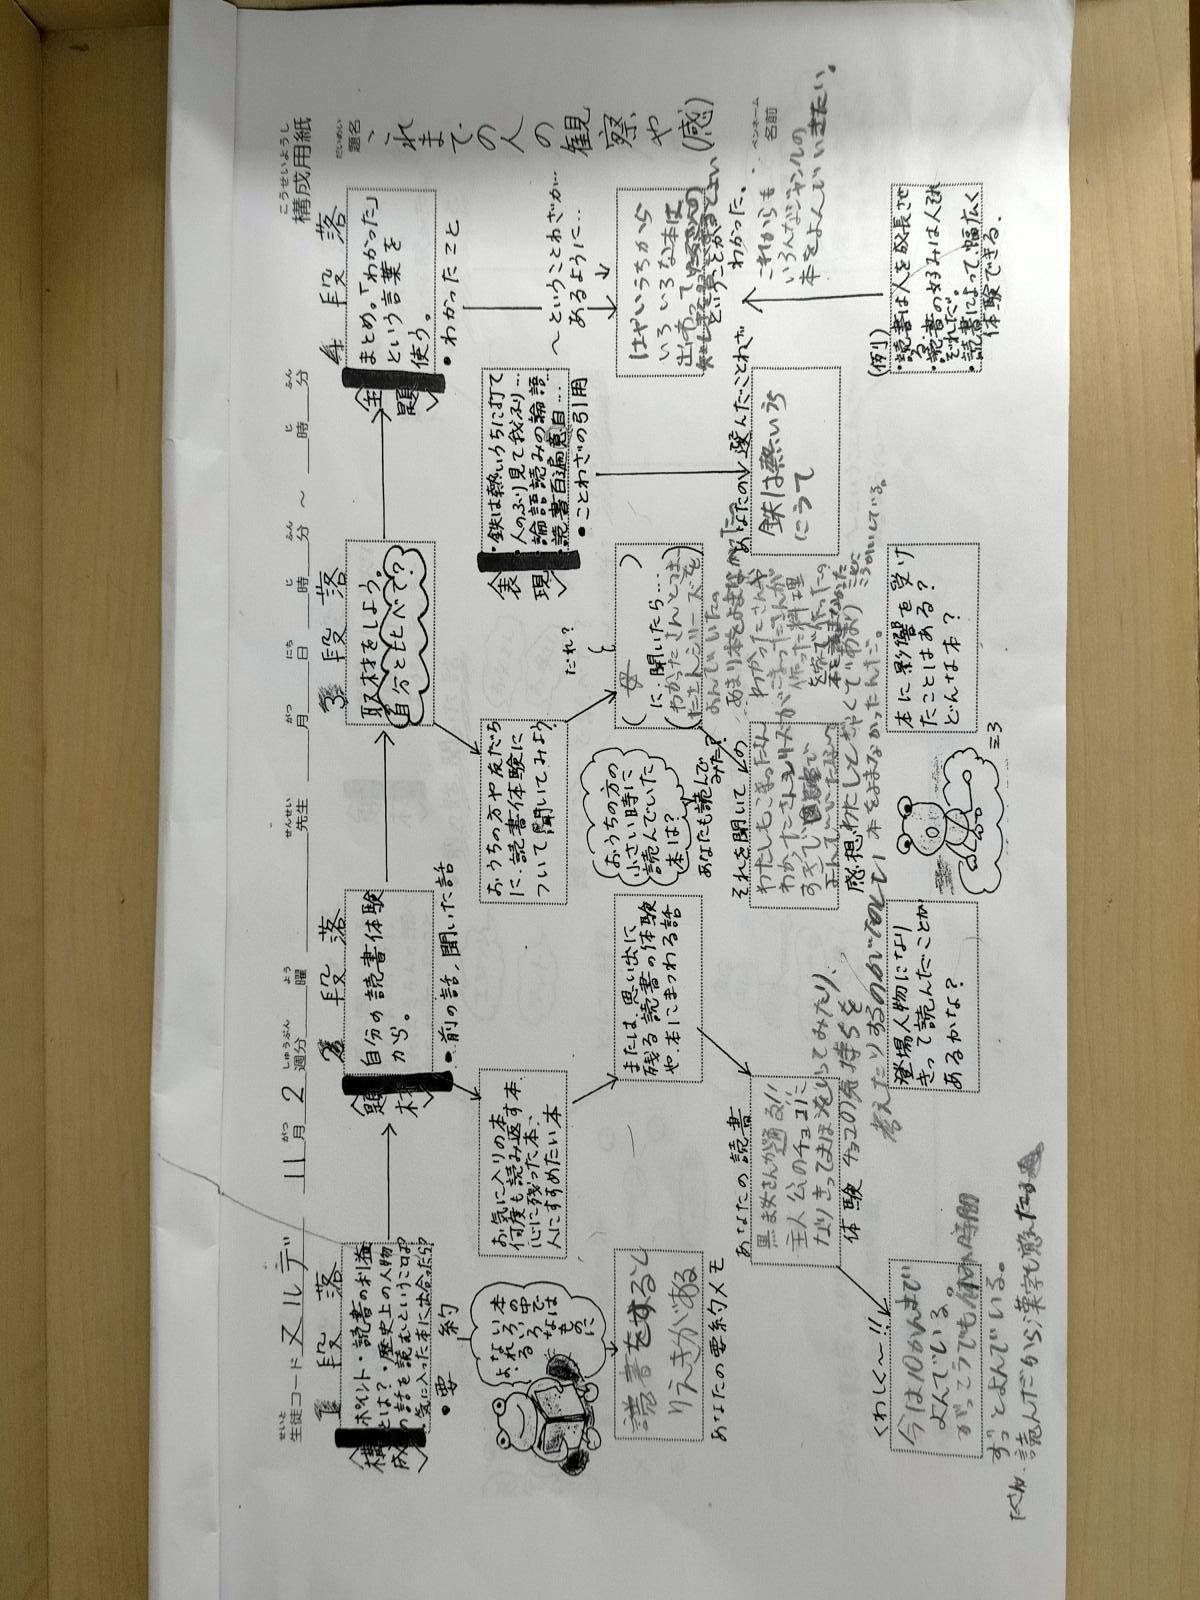 こうせいようし
構成用紙
だいめい
題名
これまでの人の観察や(感)
ペンネーム
名前
せいと
生徒コード ヌルデ
11月2週分
がつ
しゅうぶん
よう
曜
せんせい
先生
月 日 時 分 ～ 時 分
がつ にち じ ふん じ ふん
1 段落
〈構成〉
ポイント・読書の利益
とは？・歴史上の人物
の話を読むということは？
気に入った本に出会ったら？
・要約
よくない本
なれいろの
いろいろ中で
るはなも
のに
読書をすると
りえきがある
あなたの要約メモ
2 段落
〈題材〉
自分の読書体験
から。
・前の話、聞いた話
お気に入りの本、
何度も読み返す本
心に残った本、
人にすすめたい本
または、思い出に
残る読書の体験
や、本にまつわる話
あなたの読書
体験
黒ま女さんが通る!!
主人公のチョコに
なりきってまほうをいってみたり、
チョコの気持ちを
考えたりするのが
くわしく〜!!
今は10かんまで
よんでいる。
がっこうでも休み時間
ずっとよんでいる。
たくさん読んだから漢字も覚えた
登場人物になり
きって読んだことが
あるかな？
3 段落
取材をしよう。
自分と比べて？
おうちの方や友だち
に、読書体験に
ついて聞いてみよう。
だれ？
(母)
に、聞いたら…
わかったさんとこまっ
たさんシリーズを
よんでいた。
あまり本をよまなかった。
わかったさんや
こまったさんが
作った料理
おうちの方の
小さい時に
読んでいた
本は？
あなたも読んで
みた？
それを聞いての
感想
わたしもこまったさん
わかったさんシリーズが
すきで
わたしとぎゃくであまり
本をよまなかったんだ。
本に影響を受け
たことはある？
どんな本？
〈表現〉
・鉄は熱いうちに打て
人のふり見て我ふり…
論語読みの論語…
読書百遍意自…
・ことわざの引用
あなたの選んだことわざ
鉄は熱いうち
にうて
4 段落
〈主題〉
まとめ。「わかった」
という言葉を
使う。
・わかったこと
〜ということわざが…
あるように…
はやいうちから
いろいろな本に
出会って
ということがよい
わかった。
これからも
いろんなジャンルの
本をよんでいきたい。
(例)
・読書は人を成長させ
る。
・読書の好みは人それ
ぞれだ。
・読書によって、幅広く
体験できる。